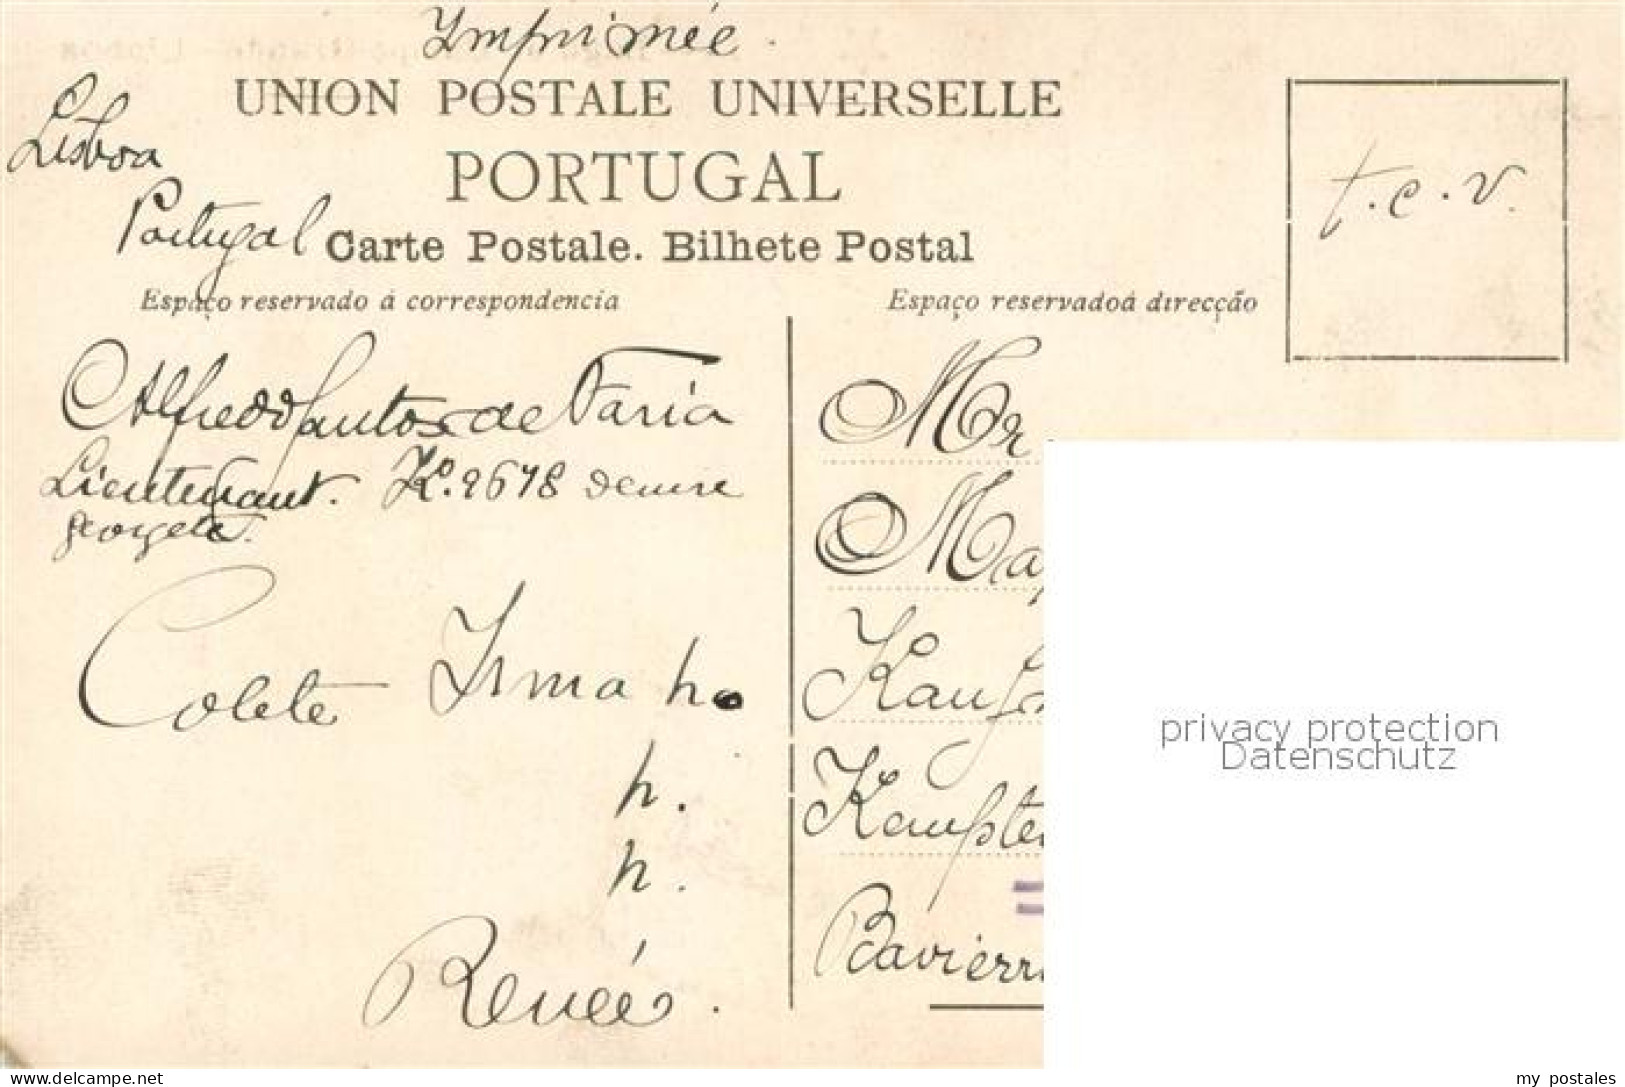 Imprimée.
UNION POSTALE UNIVERSELLE
Lisboa
PORTUGAL
Portugal
Carte Postale. Bilhete Postal
t.c.v.
Espaço reservado á correspondencia
Espaço reservadoá direcção
Alfredo Santos de Faria
Lieutenant. K.º 2678 Denise
georgete.
Colete Irma h.
h.
h.
Renée.
Mr
Bavierr
privacy protection
Datenschutz
delcampe.net
my_postales